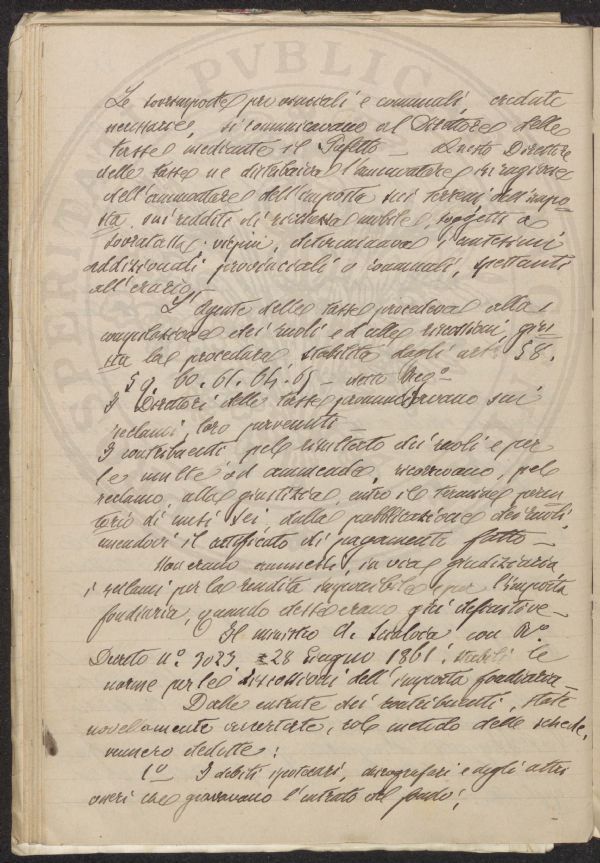 Le sovrimposte provinciali e comunali, credute
necessarie, si comunicavano al Direttore delle
tasse mediante il Prefetto – Questo Direttore
delle tasse ne distribuiva l'ammontare in ragione
dell'ammontare dell'imposta sui terreni dell'impo=
sta sui redditi di ricchezza mobile, soggetti a
sovratassa, determinava i centesimi
addizionali provinciali o comunali, spettanti
all'erario –
L'Agente delle tasse procedeva alla
compilazione dei ruoli e dalle riscossioni, giu=
sta la procedura stabilita dagli art.i 58.
59. 60. 61. 64. 65 – detto Reg.o
I Direttori delle tasse provvedevano sui
reclami, loro pervenuti –
I contribuenti pel risultato dei ruoli e per
le multe od ammende, ricorrevano, pel
reclamo alla giustizia, entro il termine peren
torio di mesi sei, dalla pubblicazione dei ruoli,
unendovi il certificato di pagamento fatto –
Non erano ammessi, in via giudiziaria
i reclami per la rendita imponibile, per l'imposta
fondiaria, quando desse erano già definitive –
Il ministro A. Scialoia con R.o
Decreto n.o 3023 = 28 Giugno 1861: stabilì le
norme per le riscossioni dell'imposta fondiaria –
Dalle entrate dei contribuenti, state
novellamente accertate, col metodo delle schede,
vennero dedotte:
1o I debiti ipotecari, chirografari e degli altri
oneri che gravavano l'entrata del fondo;